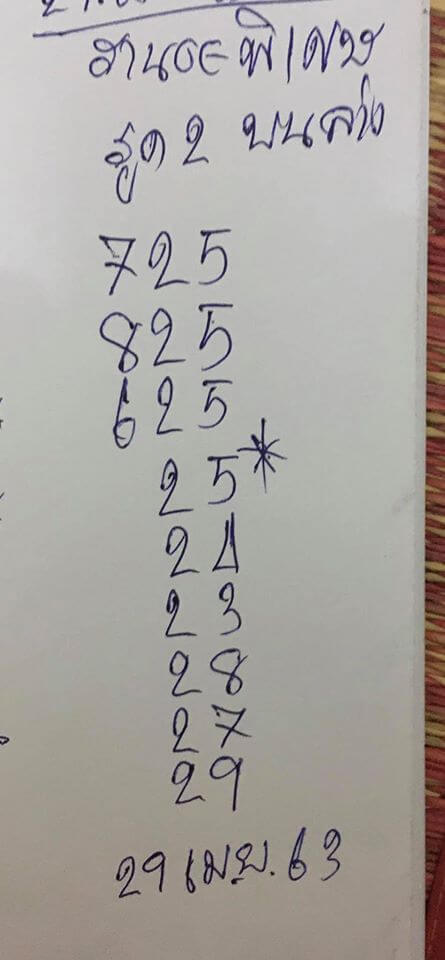 ฮานอยพิเศษ
รูด 2 บนล่าง
725
825
625
25*
24
23
28
27
29
29 เม.ย. 63